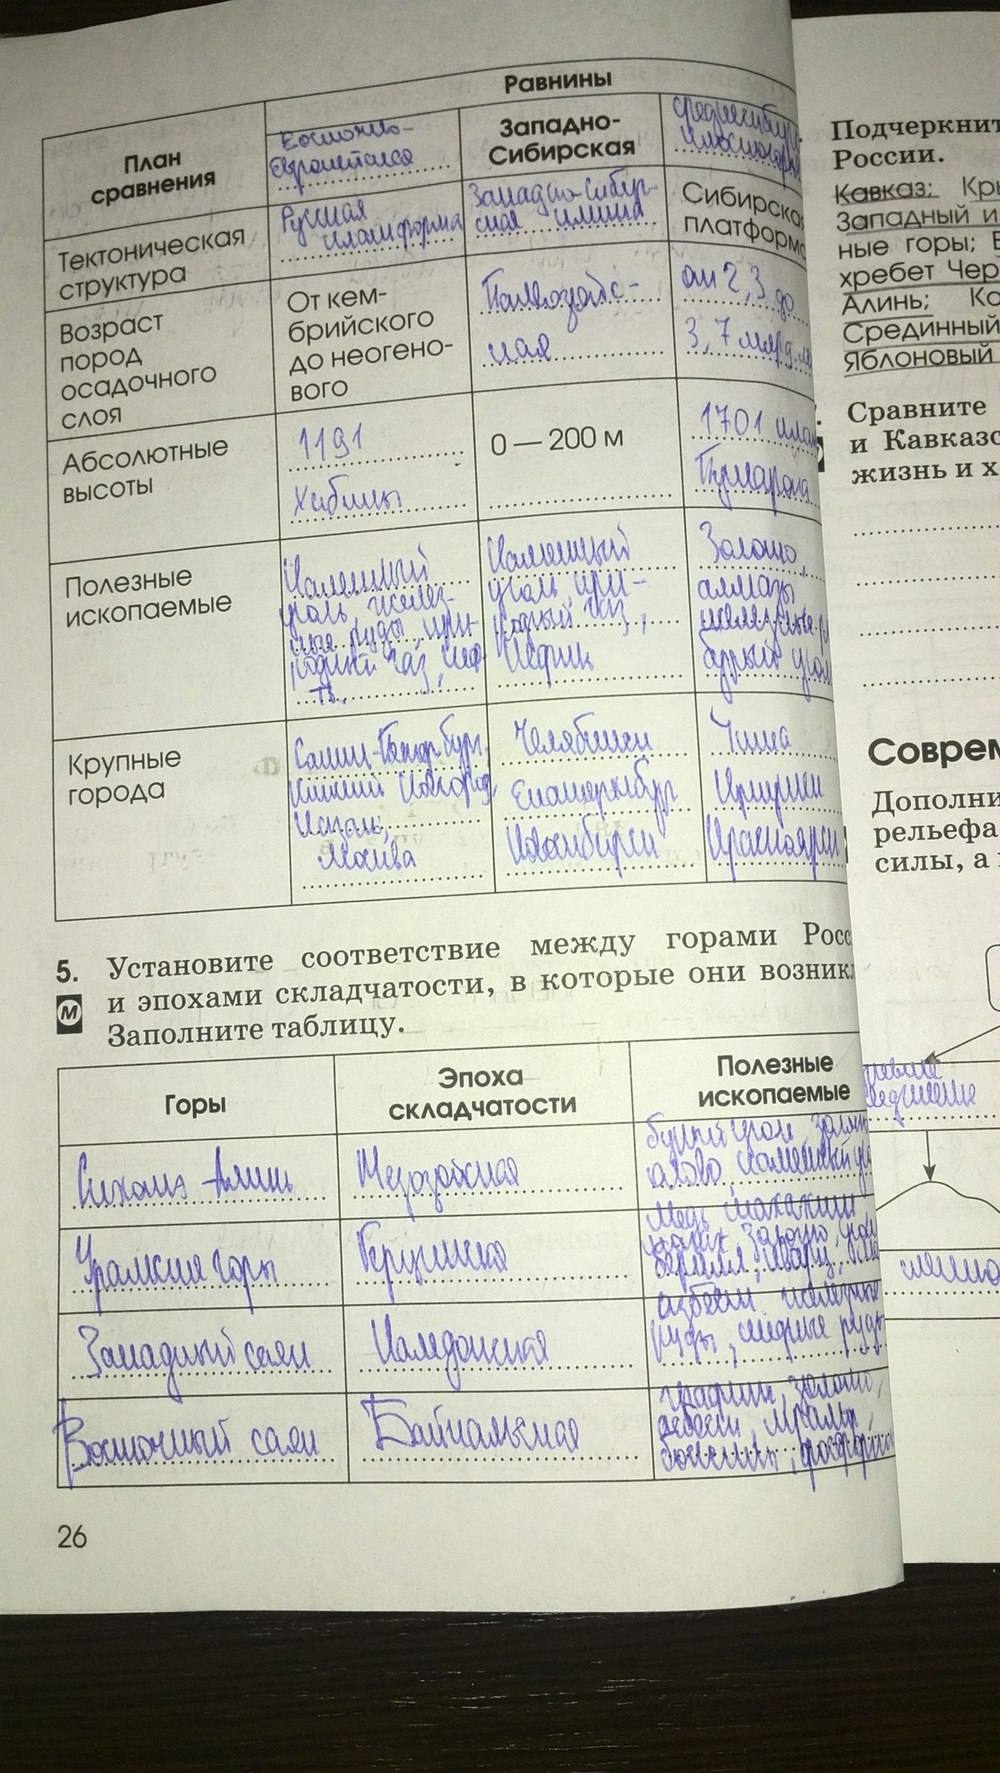 Равнины
План
сравнения
Восточно-
Европейская
Западно-
Сибирская
Тектоническая
структура
Русская
платформа
Западно-Сибир-
ская плита
Сибирская
платформа
Возраст
пород
осадочного
слоя
От кем-
брийского
до неогено-
вого
Палеозойс-
кая
от 2,3 до
3,7 млрд.
Абсолютные
высоты
1191
Хибины
0 — 200 м
1701
Полезные
ископаемые
Каменный
уголь, желез-
ные руды, при-
родный газ, неф-
ть.
Каменный
уголь, при-
родный газ,
Нефть
Золото,
алмазы
железные
бурый уголь
Крупные
города
Санкт-Петербург,
Нижний Новгород,
Казань,
Москва
Челябинск
Екатеринбург
Новосибирск
Чита
Иркутск
Красноярск
5. Установите соответствие между горами Росс
М и эпохами складчатости, в которые они возник
Заполните таблицу.
Горы
Эпоха
складчатости
Полезные
ископаемые
Сихотэ-Алинь
Мезозойская
бурый уголь, золото
олово, каменный
Уральские горы
Герцинская
Медь, малахит
золото
Западный саян
Каледонская
асбест, железные
руды, медные руды
Восточный саян
Байкальская
графит, золото,
бокситы, фосфорит
26
Подчеркнит
России.
Кавказ; Кры
Западный и
ные горы; В
хребет Чер
Алинь; Ко
Срединный
Яблоновый
Сравните
и Кавказс
жизнь и х
Соврем
Дополни
рельефа
силы, а